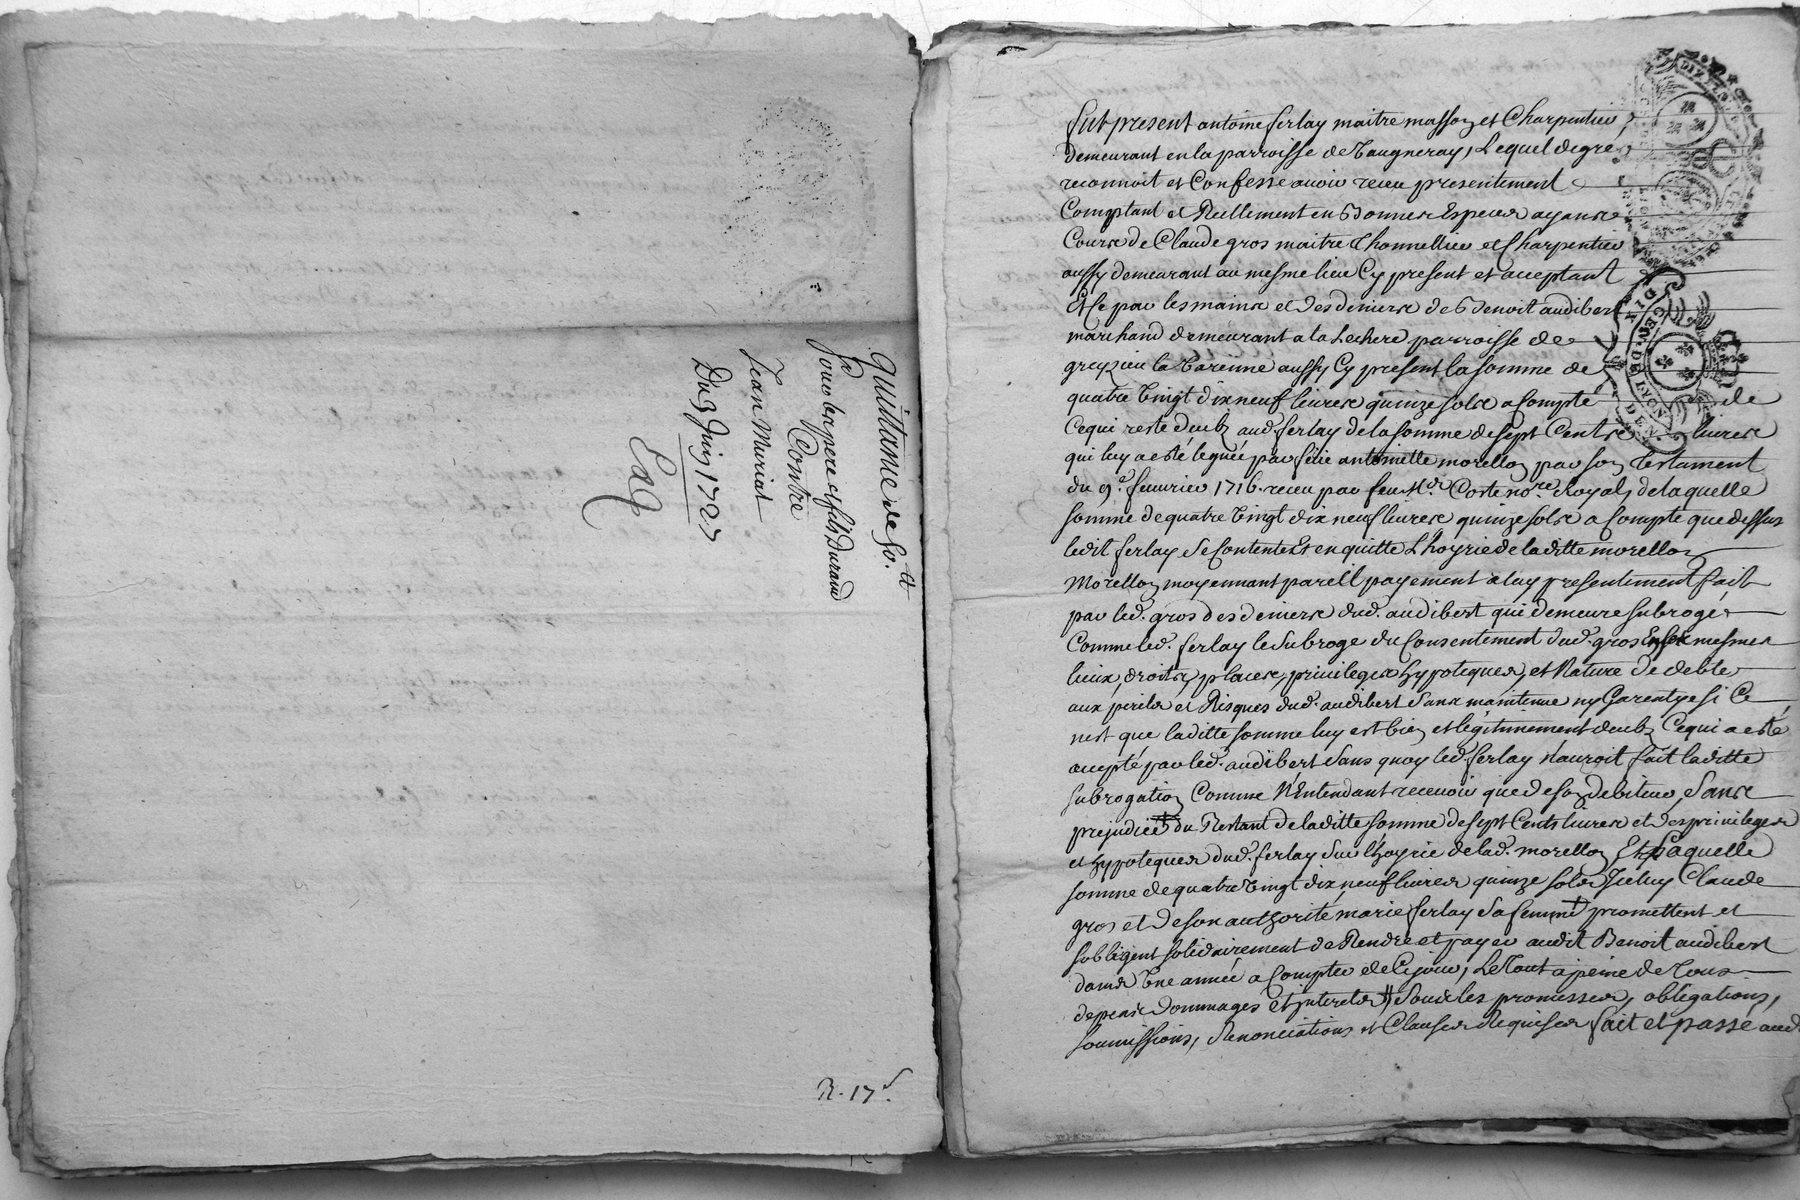 quittance de 60.tt
Pour les pere et fils Durand
Contre
Jean Muriat
Du 9 Juin 1727
Eaq
R. 17s.
Fut present antoine ferlay maitre masson et Charpentier
demeurant en la parroisse de Vaugneray, Lequel de gre
reconnoit et Confesse avoir receu presentement
Comptant et Reellement en Bonnes Especes ayans
Cours de Claude gros maitre Thonnellier et Charpentier
aussy demeurant au mesme lieu Cy present et aceptant
Et Ce par les mains et des deniers de Benoit audibert
marchand demeurant a la Lechere parroisse de
grezieu la Varenne aussy Cy present la somme de
quatre vingt dix neuf livres quinze sols a Compte de
Ce qui reste deub aud. ferlay de la somme de sept Cents livres
qui luy a esté leguée par feüe antoinette morellon par son Testament
du 9.e fevrier 1716. receu par feu Me. Coste no.re Royal, de laquelle
somme de quatre vingt dix neuf livres quinze sols a Compte que dessus
ledit ferlay se Contente Et en quitte L'hoyrie de laditte morellon
Morellon moyennant pareil payement a luy presentement fait
par led. gros des deniers dud. audibert qui demeure subrogé
Comme led. ferlay le subroge du Consentement dud. gros En ses mesmes
lieux, droits, places, privileges hypoteques, et Nature de debte
aux perils et Risques dud. audibert sans maintenue ny Garentye si Ce
n'est que laditte somme luy est bien et legitimement deub Ce qui a esté
acepté par led. audibert sans quoy led. ferlay n'auroit fait laditte
subrogation Comme N'Entendant recevoir que de son debiteur, Sans
prejudice du Restant de laditte somme de sept Cents livres et des privileges
et hypoteques dud. ferlay sur l'hoyrie de lad. morellon Et Laquelle
somme de quatre vingt dix neuf livres quinze sols Iceluy Claude
gros et de son authorité marie ferlay sa femme promettent et
sobligent solidairement de Rendre et payer audit Benoit audibert
dans Une année a Compter de Ce jour, Le Tout a peine de Tous
depens Dommages et interets Sous les promesses, obligations,
soumissions, Renonciations et Clauses Requises fait et passé aud.
DIX
GEN. DE LYON
DEN.